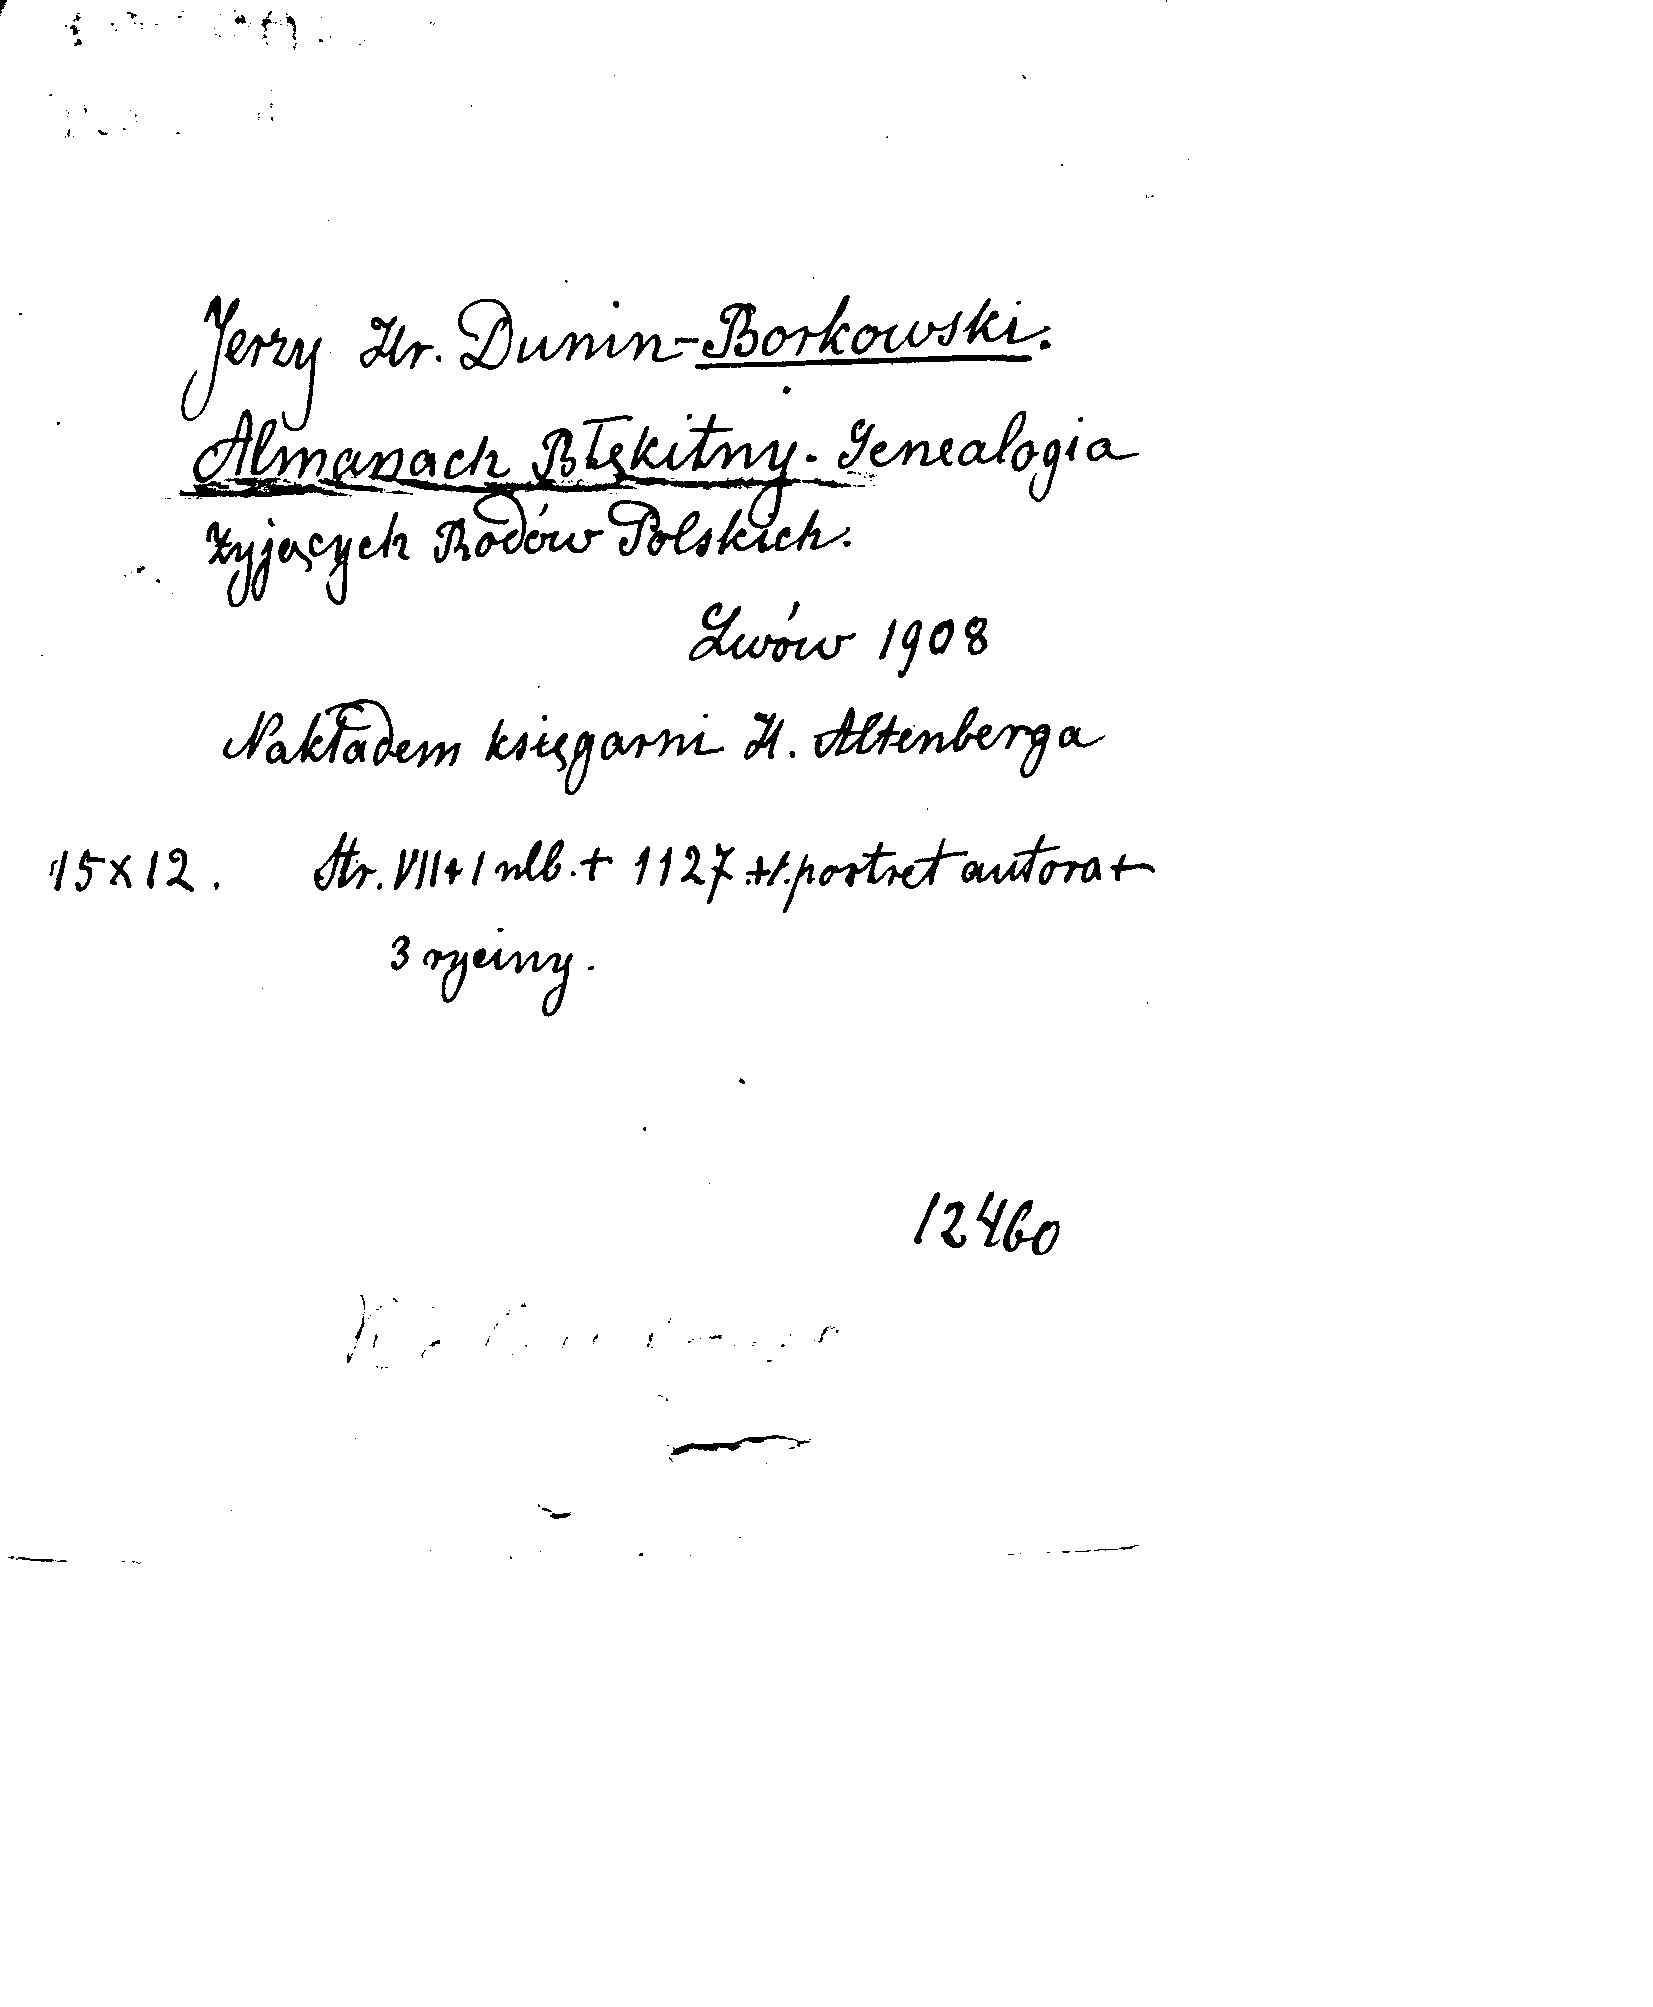 Jerzy Hr. Dunin-Borkowski.
Almanach Błękitny. Genealogia
żyjących Rodów Polskich.
Lwów 1908
Nakładem księgarni H. Altenberga
15x12. Str. VII+1 nlb. + 1127 +1. portret autora +
3 ryciny.
12460